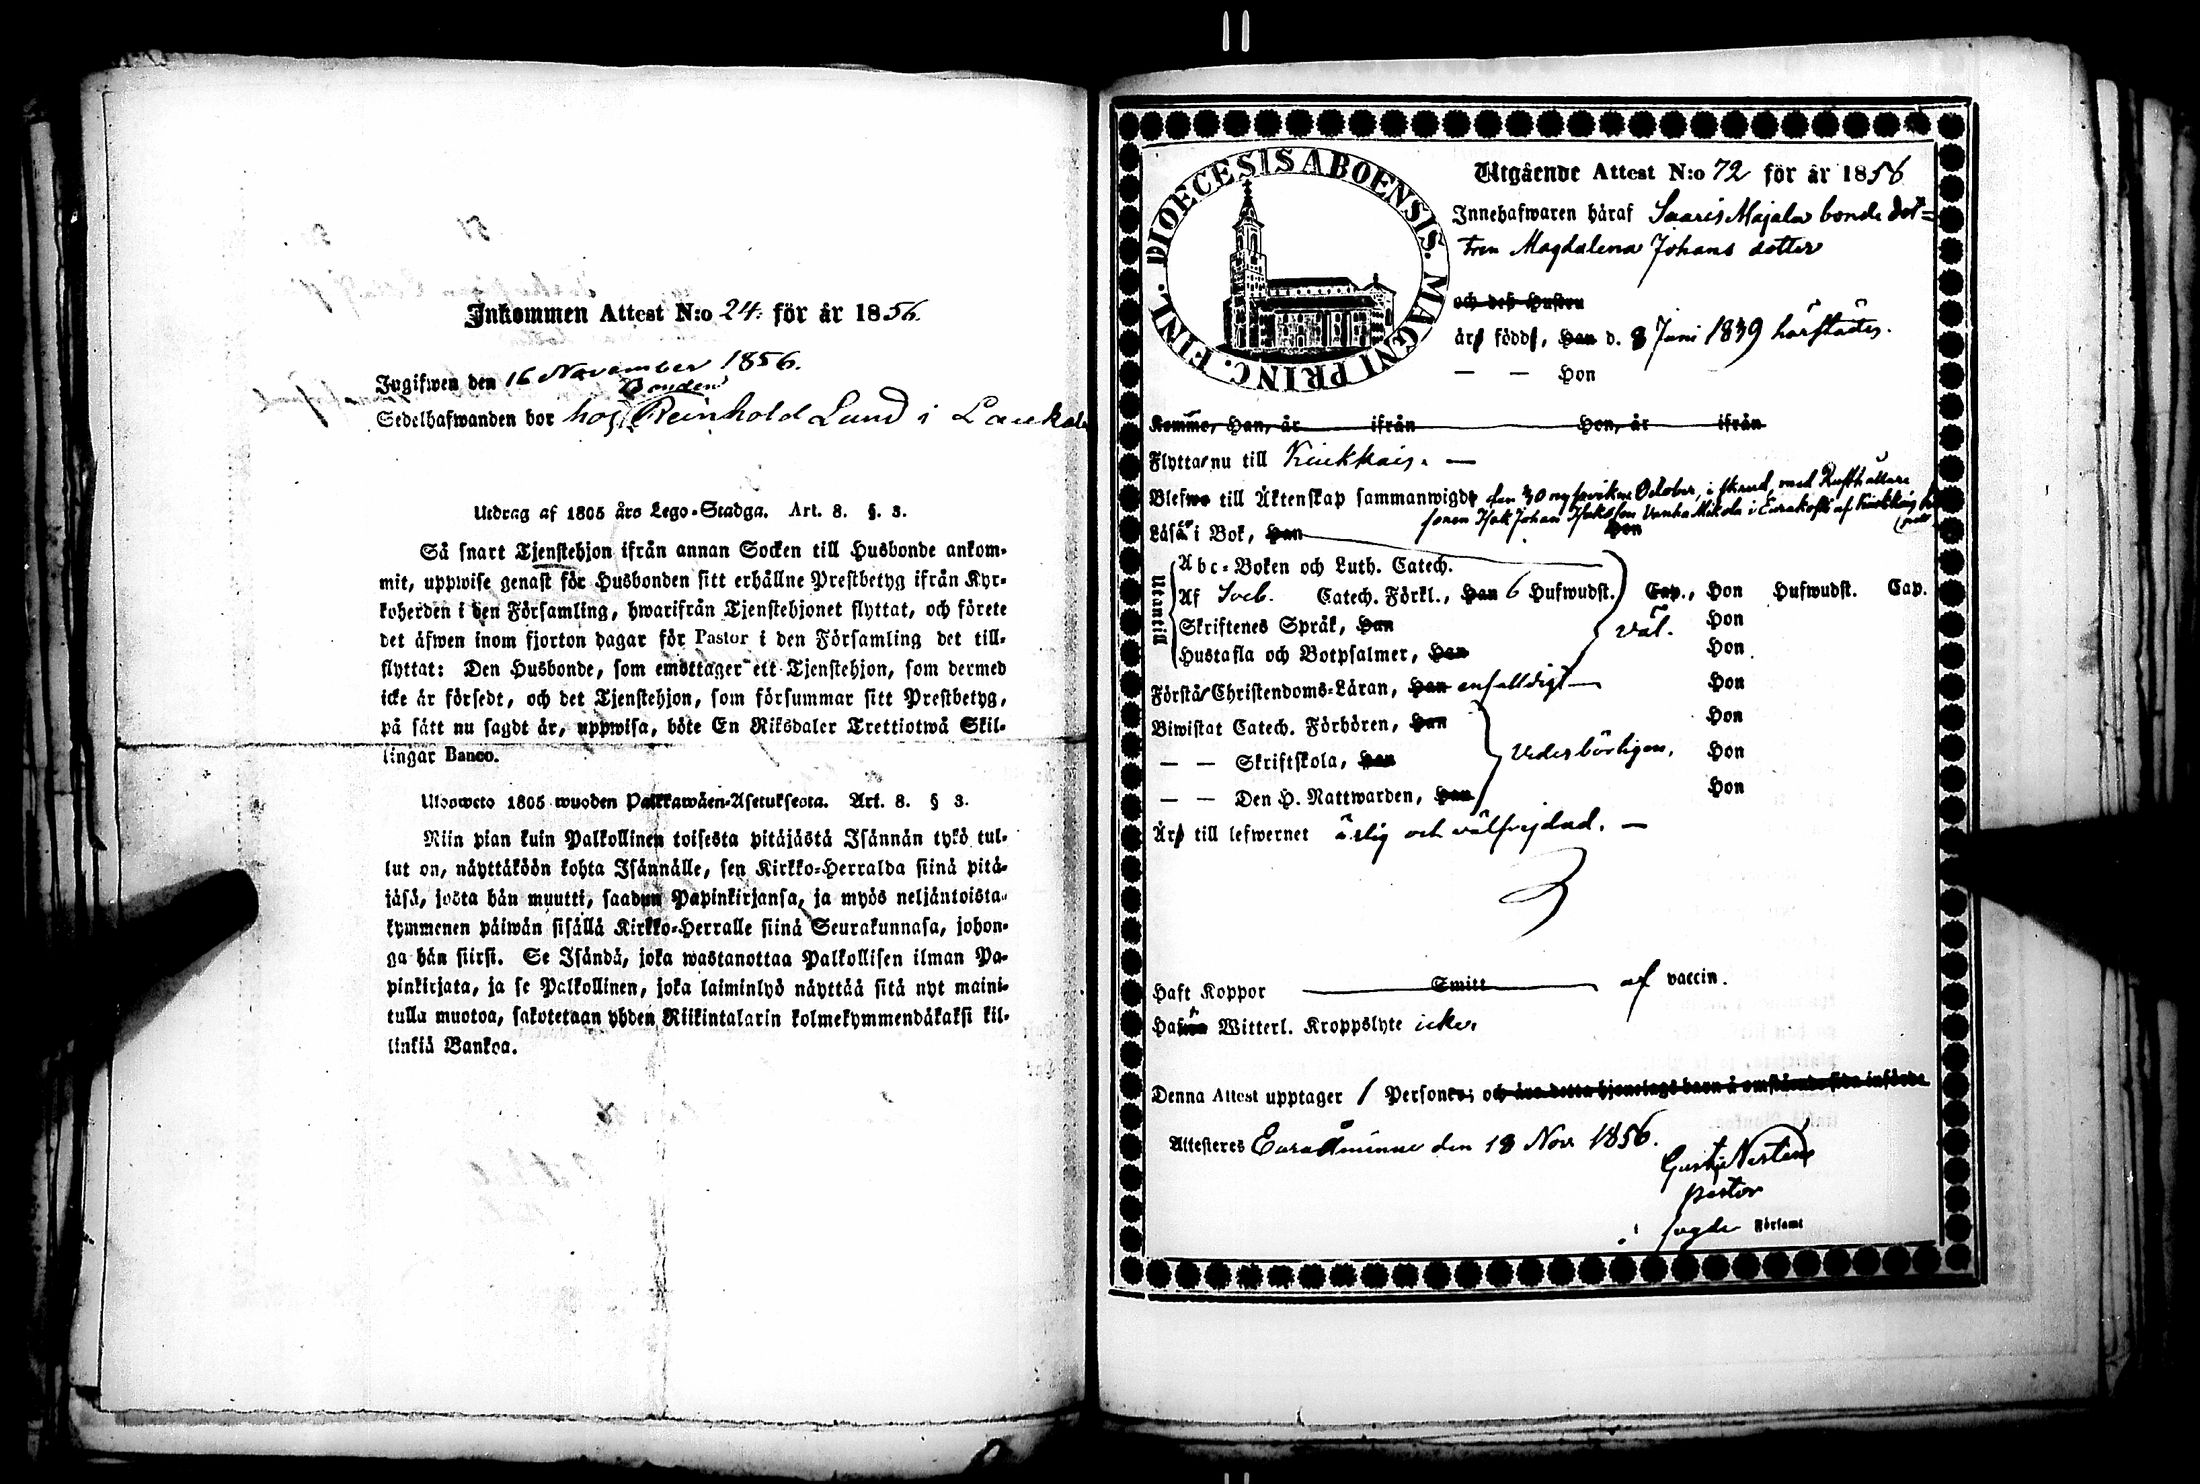 Inkommen Attest N:o 24. för år 1856.
Ingifwen den 16 November 1856.
Bonden
Sedelhafwanden bor hos Reinhold Lund i Lauk
Utdrag af 1805 års Lego-Stadga. Art. 8. §. 3.
Så snart Tjenstehjon ifrån annan Socken till Husbonde ankom-
mit, uppwise genast för Husbonden sitt erhållne Prestbetyg ifrån Kyr-
koherden i den Församling, hwarifrån Tjenstehjonet flyttat, och förete
det äfwen inom fjorton dagar för Pastor i den Församling det till-
flyttat: Den Husbonde, som emottager ett Tjenstehjon, som dermed
icke är försedt, och det Tjenstehjon, som försummar sitt Prestbetyg,
på sätt nu sagdt är, uppwisa, böte En Riksdaler Trettiotwå Skil-
lingar Banco.
Uloswcto 1805 wuoden Palkkawäen-Asetuksesta. Art. 8. § 3.
Niin pian kuin Palkollinen toisesta pitäjästä Isännän tykö tul-
lut on, näyttäköön kohta Isännälle, sen Kirkko-Herralda siinä pitä-
jäsä, josta hän muutti, saadun Papinkirjansa, ja myös neljäntoista-
kymmenen päiwän sisällä Kirkko-Herralle siinä Seurakunnasa, johon-
ga hän siirsi. Se Isändä, joka wastanottaa Palkollisen ilman Pa-
pinkirjata, ja se Palkollinen, joka laiminlyö näyttää sitä nyt maini-
tulla muotoa, sakotetaan yhden Riikintalarin kolmekymmendäkaksi kil-
linkiä Bankoa.
DIOECESIS ABOENSIS. MAGNI PRINC. FINL.
Utgående Attest N:o 72 för år 1856
Innehafwaren häraf Saaris Majala bonde dot=
tren Magdalena Johans dotter
och deß Hustru
är född, Han d. 8 Juni 1839 härstädes.
— — Hon
Kommo, Han, år ifrån Hon, år ifrån
Flytta nu till Kiukkais. —
Blefwo till Äktenskap sammanwigde den 30 October, i med Rusthållare
sonen Isak Johan Isaksson Vanha Mikola i Eurakoski af Kiukkais
Läsa i Bok, Han Hon
Utantill
Abc-Boken och Luth. Catech.
Af Sveb. Catech. Förkl., Han 6 Hufwudst. Cap., Hon Hufwudst. Cap.
Skriftenes Språk, Han väl. Hon
Hustafla och Botpsalmer, Han Hon
Förstå Christendoms-Läran, Han enfalldigt — Hon
Biwistat Catech. Förhören, Han Hon
— — Skriftskola, Han vederbörligen. Hon
— — Den H. Nattwarden, Han Hon
Är till lefwernet ärlig och välfrejdad. —
Haft Koppor Smitt af vaccin.
Hafwa Witterl. Kroppslyte icke.
Denna Attest upptager 1 Personer; och äro detta hjonelags barn å omstående sida införde
Attesteres Euraåminne den 13 Nov 1856.
Gust
pastor
i sagde Församl